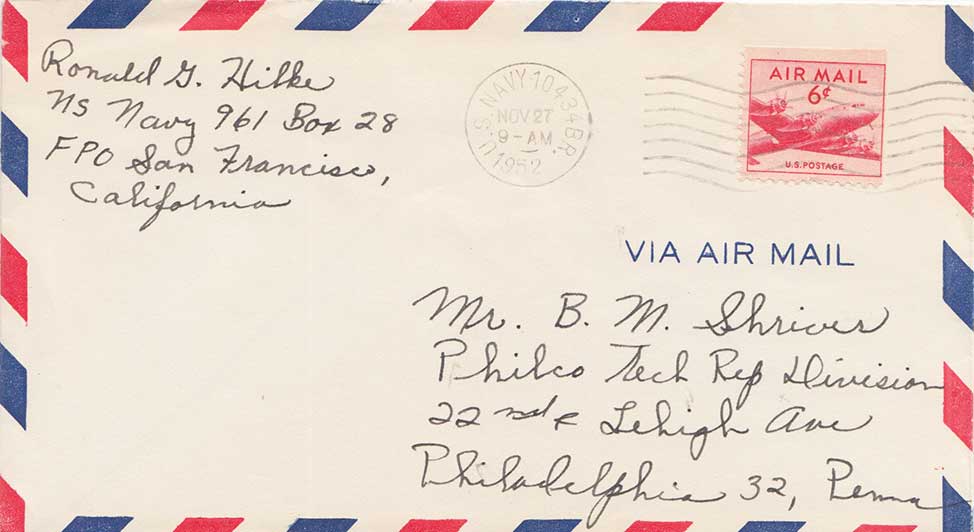 Ronald G. Hilke
NS Navy 961 Box 28
FPO San Francisco,
California
U.S. NAVY 10434 BR.
NOV 27
9 - AM
1952
AIR MAIL
6¢
U.S. POSTAGE
VIA AIR MAIL
Mr. B. M. Shriver
Philco Tech Rep Division
22nd & Lehigh Ave
Philadelphia 32, Penna